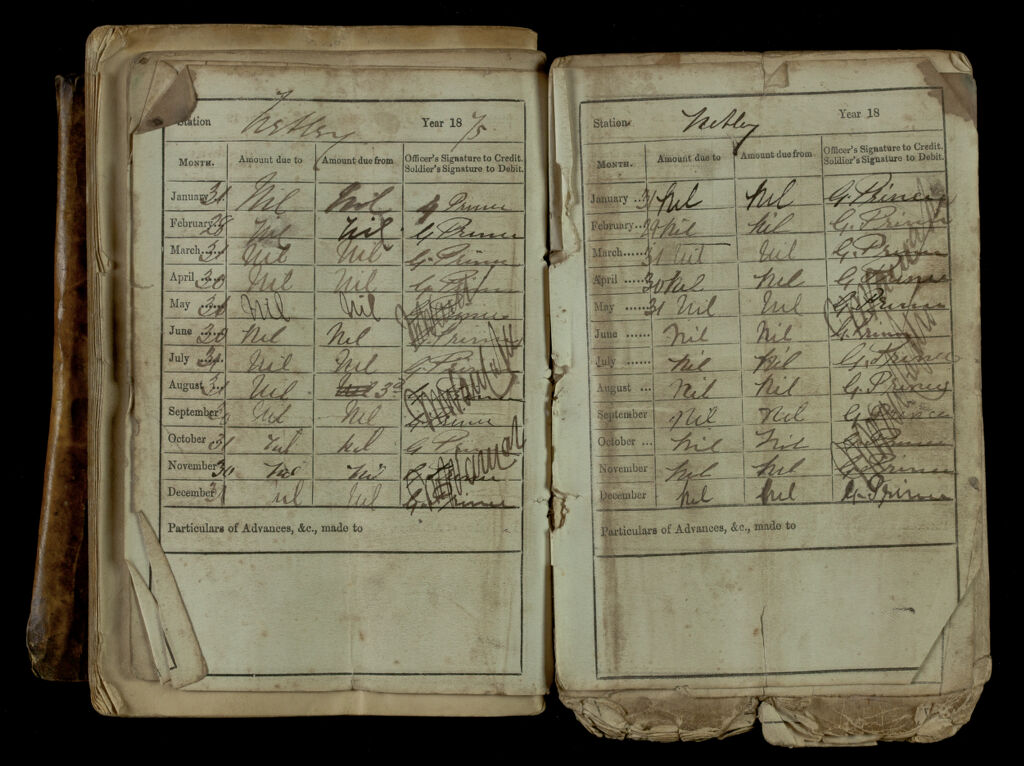 Station Netley Year 18 75
MONTH. Amount due to Amount due from Officer's Signature to Credit. Soldier's Signature to Debit.
January 31 Nil Nil G Prince
February 28 Nil Nil G Prince
March ...... 31 Nil Nil G. Prince
April ...... 30 Nil Nil G Prince
May ...... 31 Nil Nil G Prince
June ...... 30 Nil Nil G Prince
July ...... 31 Nil Nil G Prince
August ... 31 Nil Nil
September 30 Nil Nil G Prince
October 31 Nil Nil G Prince
November 30 Nil Nil G. Prince
December 31 Nil Nil G. Prince
Particulars of Advances, &c., made to
Station Netley Year 18
MONTH. Amount due to Amount due from Officer's Signature to Credit. Soldier's Signature to Debit.
January ... 31 Nil Nil G. Prince
February ... 29 Nil Nil G. Prince
March ...... 31 Nil Nil G. Prince
April ...... 30 Nil Nil G Prince
May ...... 31 Nil Nil G Prince
June ...... Nil Nil G. Prince
July ...... Nil Nil G Prince
August ... Nil Nil G. Prince
September Nil Nil G. Prince
October ... Nil Nil G. Prince
November Nil Nil G. Prince
December Nil Nil G. Prince
Particulars of Advances, &c., made to